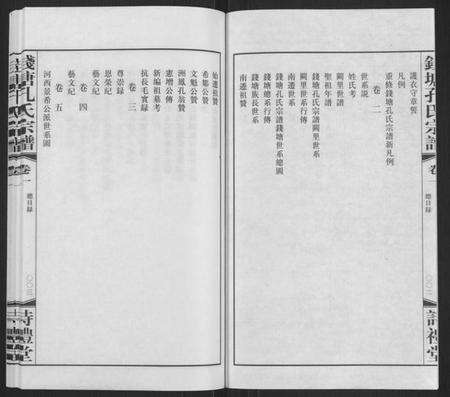 錢塘孔氏宗譜
卷一
總目錄
〇〇二
詩禮堂
凡例
重修錢塘孔氏宗譜新凡例
卷二
世系說
姓氏考
闕里世譜
聖祖年譜
錢塘孔氏宗譜闕里世系
闕里世系行傳
南遷世系
錢塘孔氏宗譜錢塘世系總圖
錢塘世系行傳
錢塘族長世系
南遷祖贊
始遷祖贊
希鄒公贊
文魁公贊
洲鳳孔翁贊
憲增傳
新編祖墓考
抗長毛實錄
卷三
尊崇錄
恩榮紀
藝文紀
卷四
藝文紀
卷五
河西景希公派世系圖
錢塘孔氏宗譜
卷一
總目錄
〇〇三
詩禮堂